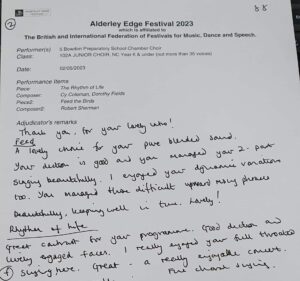 2
88
Alderley Edge Festival 2023
which is affiliated to
The British and International Federation of Festivals for Music, Dance and Speech.
Performer(s) 5 Bowdon Preparatory School Chamber Choir
Class: 102A JUNIOR CHOIR, NC Year 6 & under (not more than 35 voices)
Date: 02/05/2023
Performance Items
Piece: The Rhythm of Life
Composer: Cy Coleman, Dorothy Fields
Piece2: Feed the Birds
Composer2: Robert Sherman
Adjudicator's remarks
Thank you, for your lovely intro!
Feed
A lovely choice for your pure blended sound.
Your diction is good and you managed your 2-part
singing beautifully. I enjoyed your dynamic variations
too. You managed those difficult upward rising phrases
beautifully, keeping well in tune. Lovely!
Rhythm of Life
Great contrast for your programme. Good diction and
lively engaged faces. I really enjoyed your full throated
singing here. Great - a really enjoyable concert.
Fine choral singing.